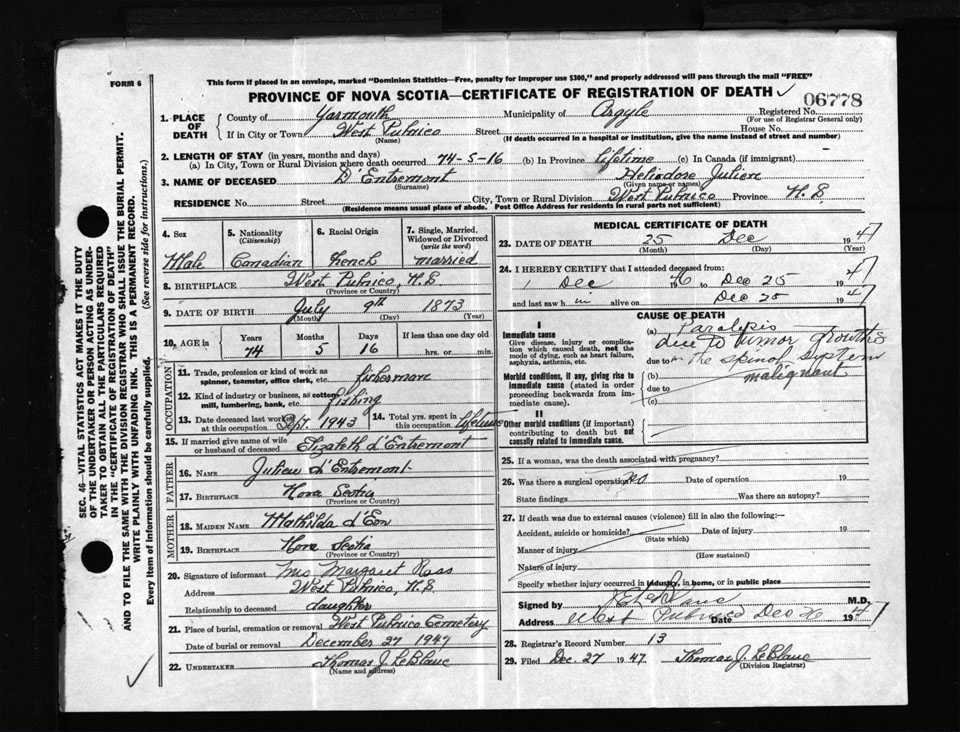 FORM 6
This form if placed in an envelope, marked "Dominion Statistics—Free, penalty for improper use $300," and properly addressed will pass through the mail "FREE"
PROVINCE OF NOVA SCOTIA—CERTIFICATE OF REGISTRATION OF DEATH ✓
06778
1. PLACE OF DEATH
County of Yarmouth Municipality of Argyle Registered No.
(For use of Registrar General only)
If in City or Town West Pubnico Street House No.
(Name) (If death occurred in a hospital or institution, give the name instead of street and number)
2. LENGTH OF STAY (in years, months and days)
(a) In City, Town or Rural Division where death occurred 74-5-16 (b) In Province lifetime (c) In Canada (if immigrant)
3. NAME OF DECEASED D'Entremont Heliodore Julien
(Surname) (Given name or names)
RESIDENCE No. Street City, Town or Rural Division West Pubnico Province N.S
(Residence means usual place of abode. Post Office Address for residents in rural parts not sufficient)
4. Sex Male
5. Nationality (Citizenship) Canadian
6. Racial Origin French
7. Single, Married, Widowed or Divorced (write the word) married
8. BIRTHPLACE West Pubnico, N.S.
(Province or Country)
9. DATE OF BIRTH July 9th 1873
(Month) (Day) (Year)
10. AGE in Years Months Days If less than one day old
74 5 16 hrs. or min.
OCCUPATION
11. Trade, profession or kind of work as spinner, teamster, office clerk, etc. fisherman
12. Kind of industry or business, as cotton mill, lumbering, bank, etc. fishing
13. Date deceased last worked at this occupation Sept. 1943
14. Total yrs. spent in this occupation lifetime
15. If married give name of wife or husband of deceased Elizabeth d'Entremont
FATHER
16. NAME Julien d'Entremont
17. BIRTHPLACE Nova Scotia
(Province or Country)
MOTHER
18. MAIDEN NAME Mathilda d'Eon
19. BIRTHPLACE Nova Scotia
(Province or Country)
20. Signature of informant Mrs Margaret Ross
Address West Pubnico, N.S.
Relationship to deceased daughter
21. Place of burial, cremation or removal West Pubnico Cemetery
Date of burial or removal December 27 1947
22. UNDERTAKER Thomas J. LeBlanc
(Name and address)
MEDICAL CERTIFICATE OF DEATH
23. DATE OF DEATH 25 Dec 1947
(Month) (Day) (Year)
24. I HEREBY CERTIFY that I attended deceased from:
1 Dec 1946 to Dec 25 1947
and last saw h im alive on Dec 25 1947
CAUSE OF DEATH
I
Immediate cause
Give disease, injury or complication which caused death, not the mode of dying, such as heart failure, asphyxia, asthenia, etc.
(a) Paralysis
due to tumor growths
due to in the spinal system
malignant
Morbid conditions, if any, giving rise to immediate cause (stated in order proceeding backwards from immediate cause).
(b)
due to
(c)
II
Other morbid conditions (if important) contributing to death but not causally related to immediate cause.
25. If a woman, was the death associated with pregnancy?
26. Was there a surgical operation? No Date of operation 19
State findings Was there an autopsy?
27. If death was due to external causes (violence) fill in also the following:—
Accident, suicide or homicide? Date of injury 19
(State which)
Manner of injury
(How sustained)
Nature of injury
Specify whether injury occurred in industry, in home, or in public place
Signed by M.D.
Address West Pubnico Date Dec 1947
28. Registrar's Record Number 13
29. Filed Dec. 27 1947 Thomas J. LeBlanc
(Division Registrar)
SEC. 46—VITAL STATISTICS ACT MAKES IT THE DUTY
OF THE UNDERTAKER OR PERSON ACTING AS UNDERTAKER TO OBTAIN ALL THE PARTICULARS REQUIRED
IN THE "CERTIFICATE OF REGISTRATION OF DEATH"
AND TO FILE THE SAME WITH THE DIVISION REGISTRAR WHO SHALL ISSUE THE BURIAL PERMIT.
WRITE PLAINLY WITH UNFADING INK. THIS IS A PERMANENT RECORD.
Every item of information should be carefully supplied. (See reverse side for instructions.)